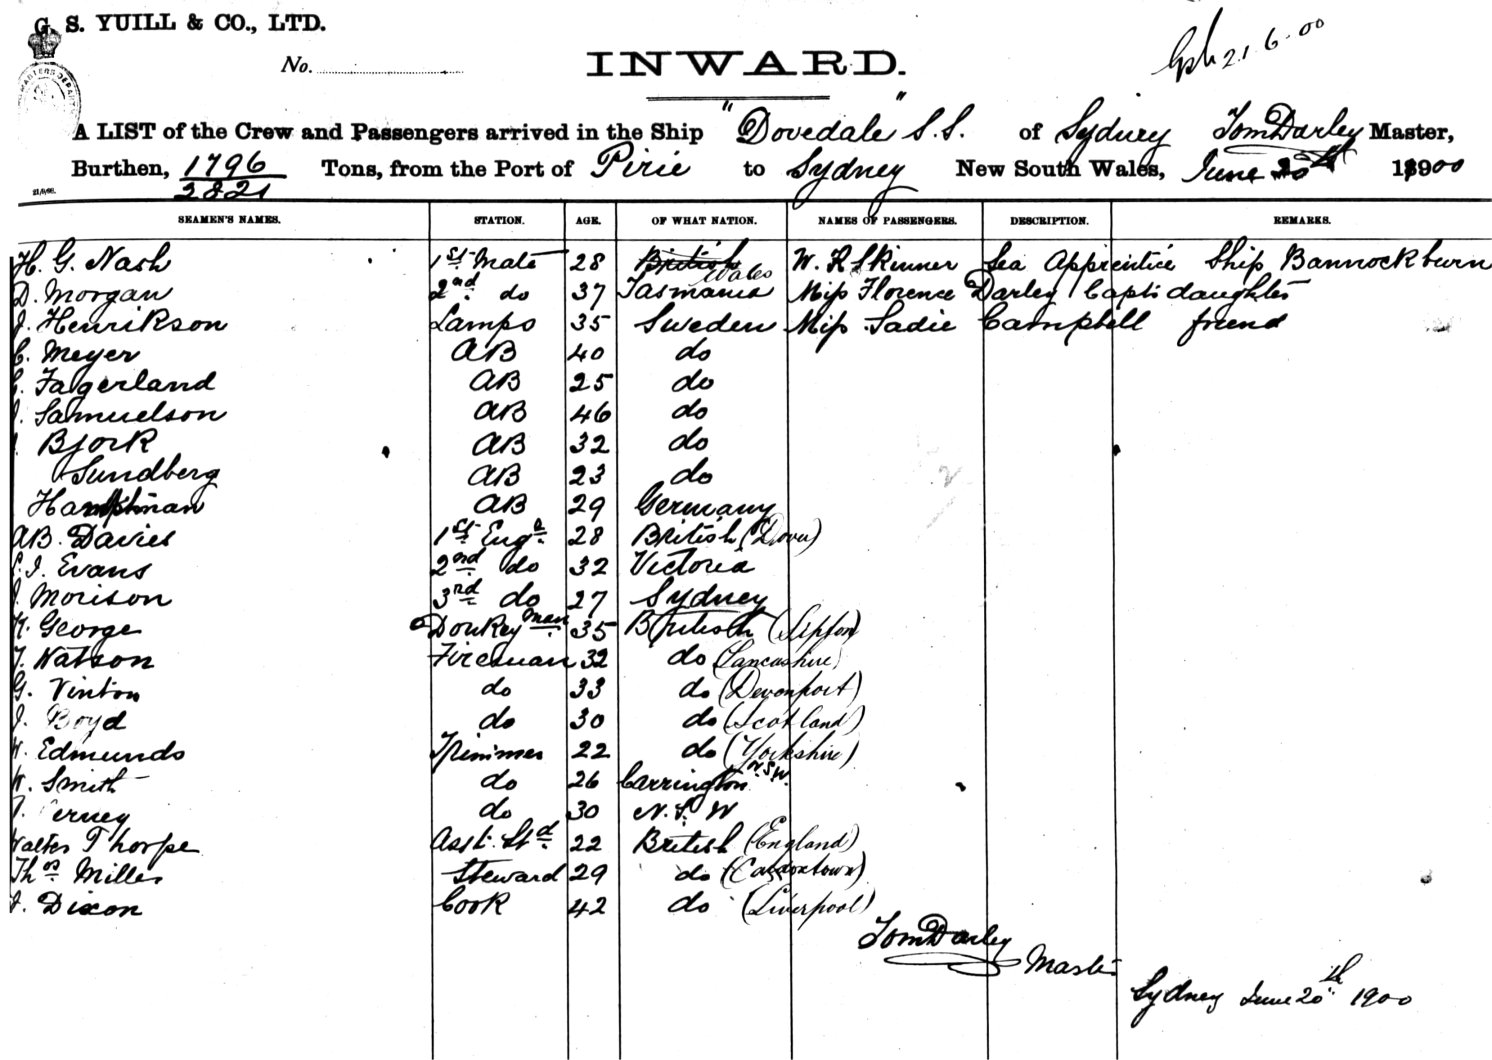 G. S. YUILL & CO., LTD.
No.
INWARD.
21.6.00
A LIST of the Crew and Passengers arrived in the Ship "Dovedale" S.S. of Sydney Tom Darley Master,
Burthen, 1796 Tons, from the Port of Pirie to Sydney New South Wales, June 20th 1900
2821
SEAMEN'S NAMES. STATION. AGE. OF WHAT NATION. NAMES OF PASSENGERS. DESCRIPTION. REMARKS.
H. G. Nash 1st Mate 28 British Wales W. R Skinner Sea Apprentice Ship Bannockburn
D. Morgan 2nd do 37 Tasmania Miss Florence Darley Capts daughter
J. Henrikson Lamps 35 Sweden Miss Sadie Campbell friend
C. Meyer AB 40 do
Fagerland AB 25 do
J. Samuelson AB 46 do
Bjork AB 32 do
Sundberg AB 23 do
AB 29 Germany
AB. Davies 1st Engr. 28 British (Dover)
Evans 2nd do 32 Victoria
J. Morison 3rd do 27 Sydney
George Donkeyman 35 British
T. Watson Fireman 32 do (Lancashire)
G. Vinton do 33 do (Devonport)
J. Boyd do 30 do (Scotland)
W. Edmunds Trimmer 22 do (Yorkshire)
W. Smith do 26 Carrington N.S.W.
do 30 N.S.W
Walter Thorpe Asst. Std. 22 British (England)
Thos Miller Steward 29 do
J. Dixon Cook 42 do (Liverpool)
Tom Darley
Master
Sydney June 20th 1900